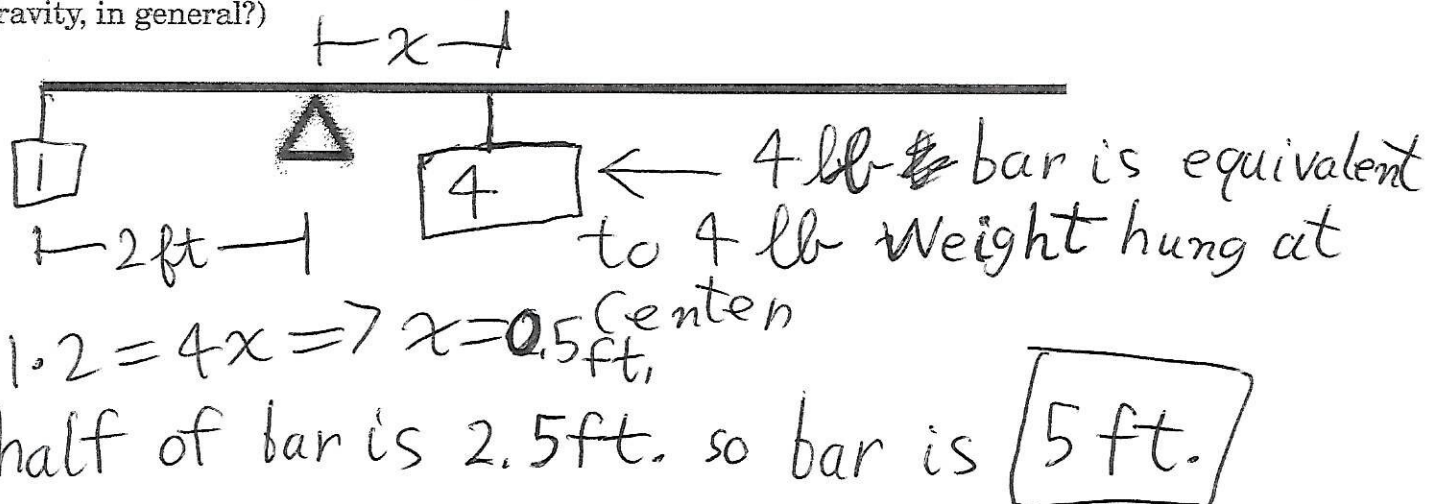 ravity, in general?)
x
1
4
← 4 lb bar is equivalent
2ft
to 4 lb Weight hung at
Center
1·2=4x=>x=0.5ft.
half of bar is 2.5ft. so bar is 5 ft.